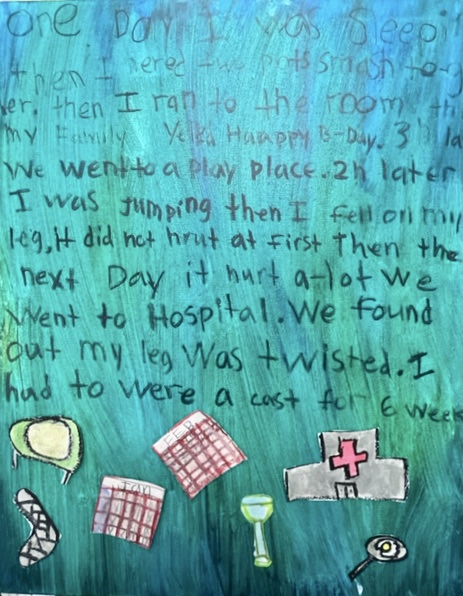 one Day I was Sleepi
then I hered two pots smash tog
er. then I ran to the room th
my Family Yelld Happpy B-Day. 3h la
We went to a play place. 2h later
I was Jumping then I fell on my
leg, it did not hrut at First Then the
next Day it hurt a-lot We
Went to Hospital. We found
out my leg Was twisted. I
had to were a cast for 6 week
FEB
Jan